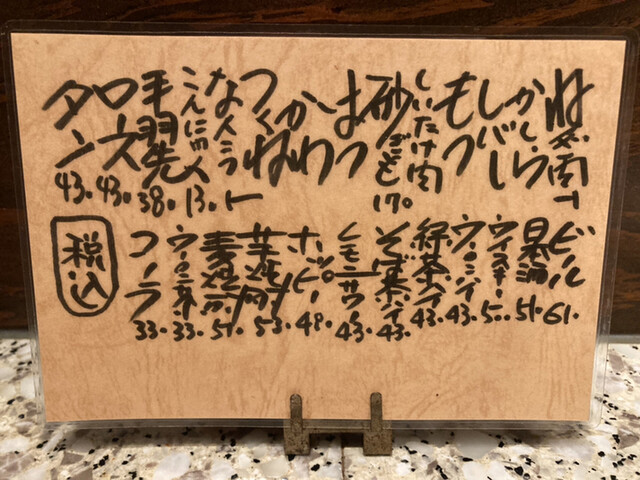 ねぎ肉
かしら
レバー
もつ
しいたけ肉
砂ぎも 170
はつ
かわ
つくね
なんこつ
こんにゃく 13.
手羽先 38.
ロース 43.
タン 43.
ビール 61.
日本酒 51.
ウイスキー 50.
ウーロンハイ 43.
緑茶ハイ 43.
そば茶ハイ 43.
レモンサワー 43.
ホッピー 48.
芋焼酎 53.
麦焼酎 51.
ウーロン茶 33.
コーラ 33.
税込